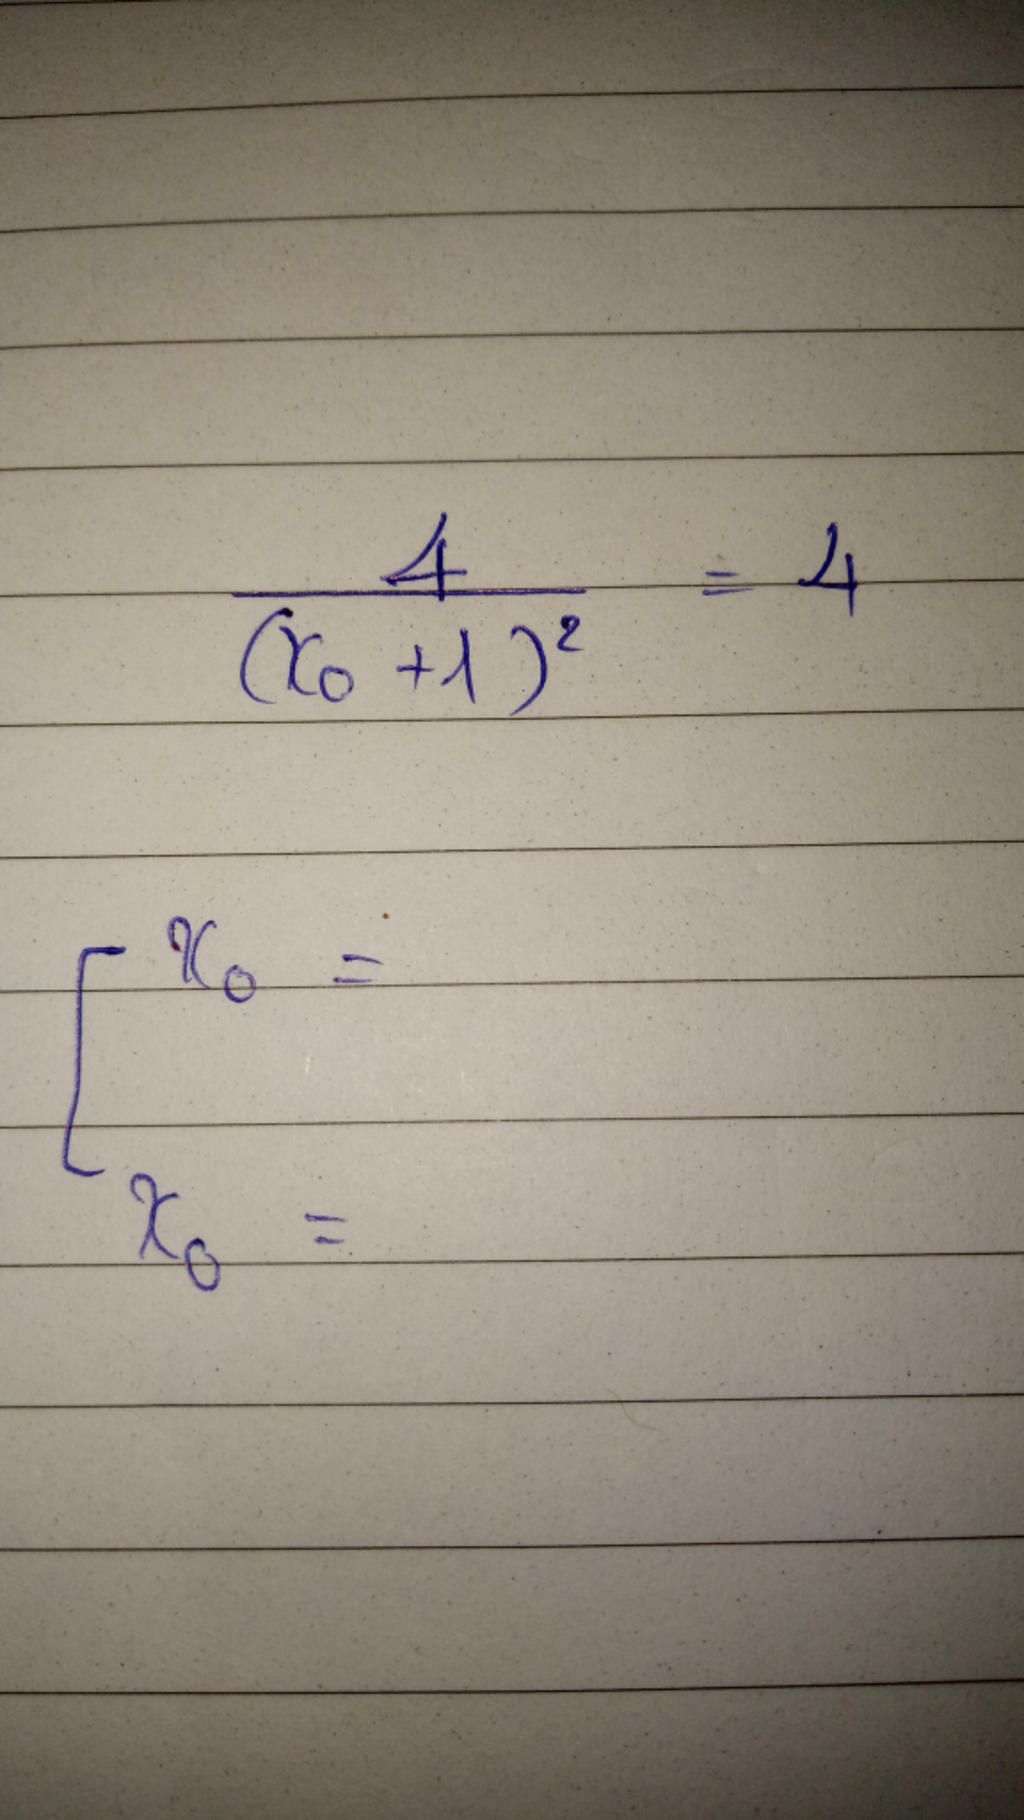 4
(x₀ +1)² = 4
x₀ =
x₀ =